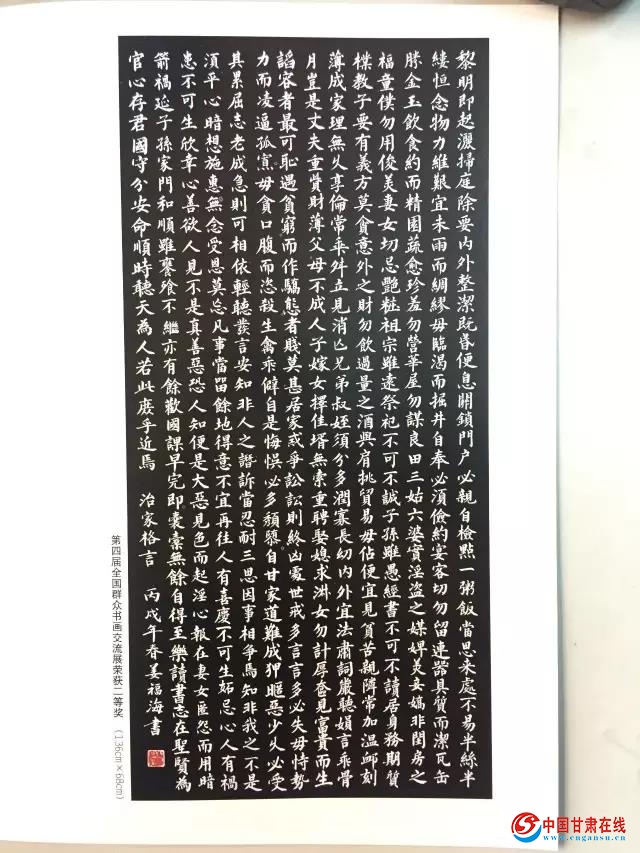 黎明即起灑掃庭除要内外整潔既昏便息關鎖門户必親自檢點一粥飯當思来處不易半絲半
縷恒念物力維艱宜未雨而綢繆毋臨渴而掘井自奉必湏儉約宴客切勿留連器具質而潔瓦缶
勝金玉飲食約而精園蔬愈珍羞勿營華屋勿謀良田三姑六婆實淫盗之媒婢美妾嬌非閨房之
福童僕勿用俊美妻女切忌艷粧祖宗雖遠祭祀不可不誠子孫雖愚經書不可不讀居身務期質
樸教子要有義方莫貪意外之財勿飲過量之酒與肩挑貿易毋佔便宜見貧苦親隣常加温卹刻
薄成家理無久享倫常乖舛立見消亡兄弟叔姪須分多潤寡長幼内外宜法肅詞嚴聽婦言乖骨
月豈是丈夫重貲財薄父母不成人子嫁女擇佳壻無索重聘娶媳求淑女勿計厚奩見富貴而生
諂容者最可恥遇貧窮而作驕態者賤莫甚居家戒爭訟訟則終凶處世戒多言言多必失毋恃勢
力而凌逼孤寡毋貪口腹而恣殺生禽乖僻自是悔悮必多頽隳自甘家道難成狎暱惡少久必受
其累屈志老成急則可相依輕聽發言安知非人之譖訴當忍耐三思因事相爭焉知非我之不是
須平心暗想施惠無念受恩莫忘凡事當留餘地得意不宜再往人有喜慶不可生妬忌心人有禍
患不可生欣幸心善欲人見不是真善惡恐人知便是大惡見色而起淫心報在妻女匿怨而用暗
箭禍延子孫家門和順雖饔飧不繼亦有餘歡國課早完即囊橐無餘自得至樂讀書志在聖賢為
官心存君國守分安命順時聽天為人若此庶乎近焉 治家格言 丙戌年春姜福海書
第四届全国群众书画交流展荣获二等奖 (136cm×68cm)
中国甘肃在线
www.cngansu.cn